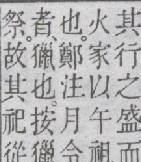 其行之盛而
火家以午祖
也。鄭注月令
者。獵也。按獵
祭故其祀從